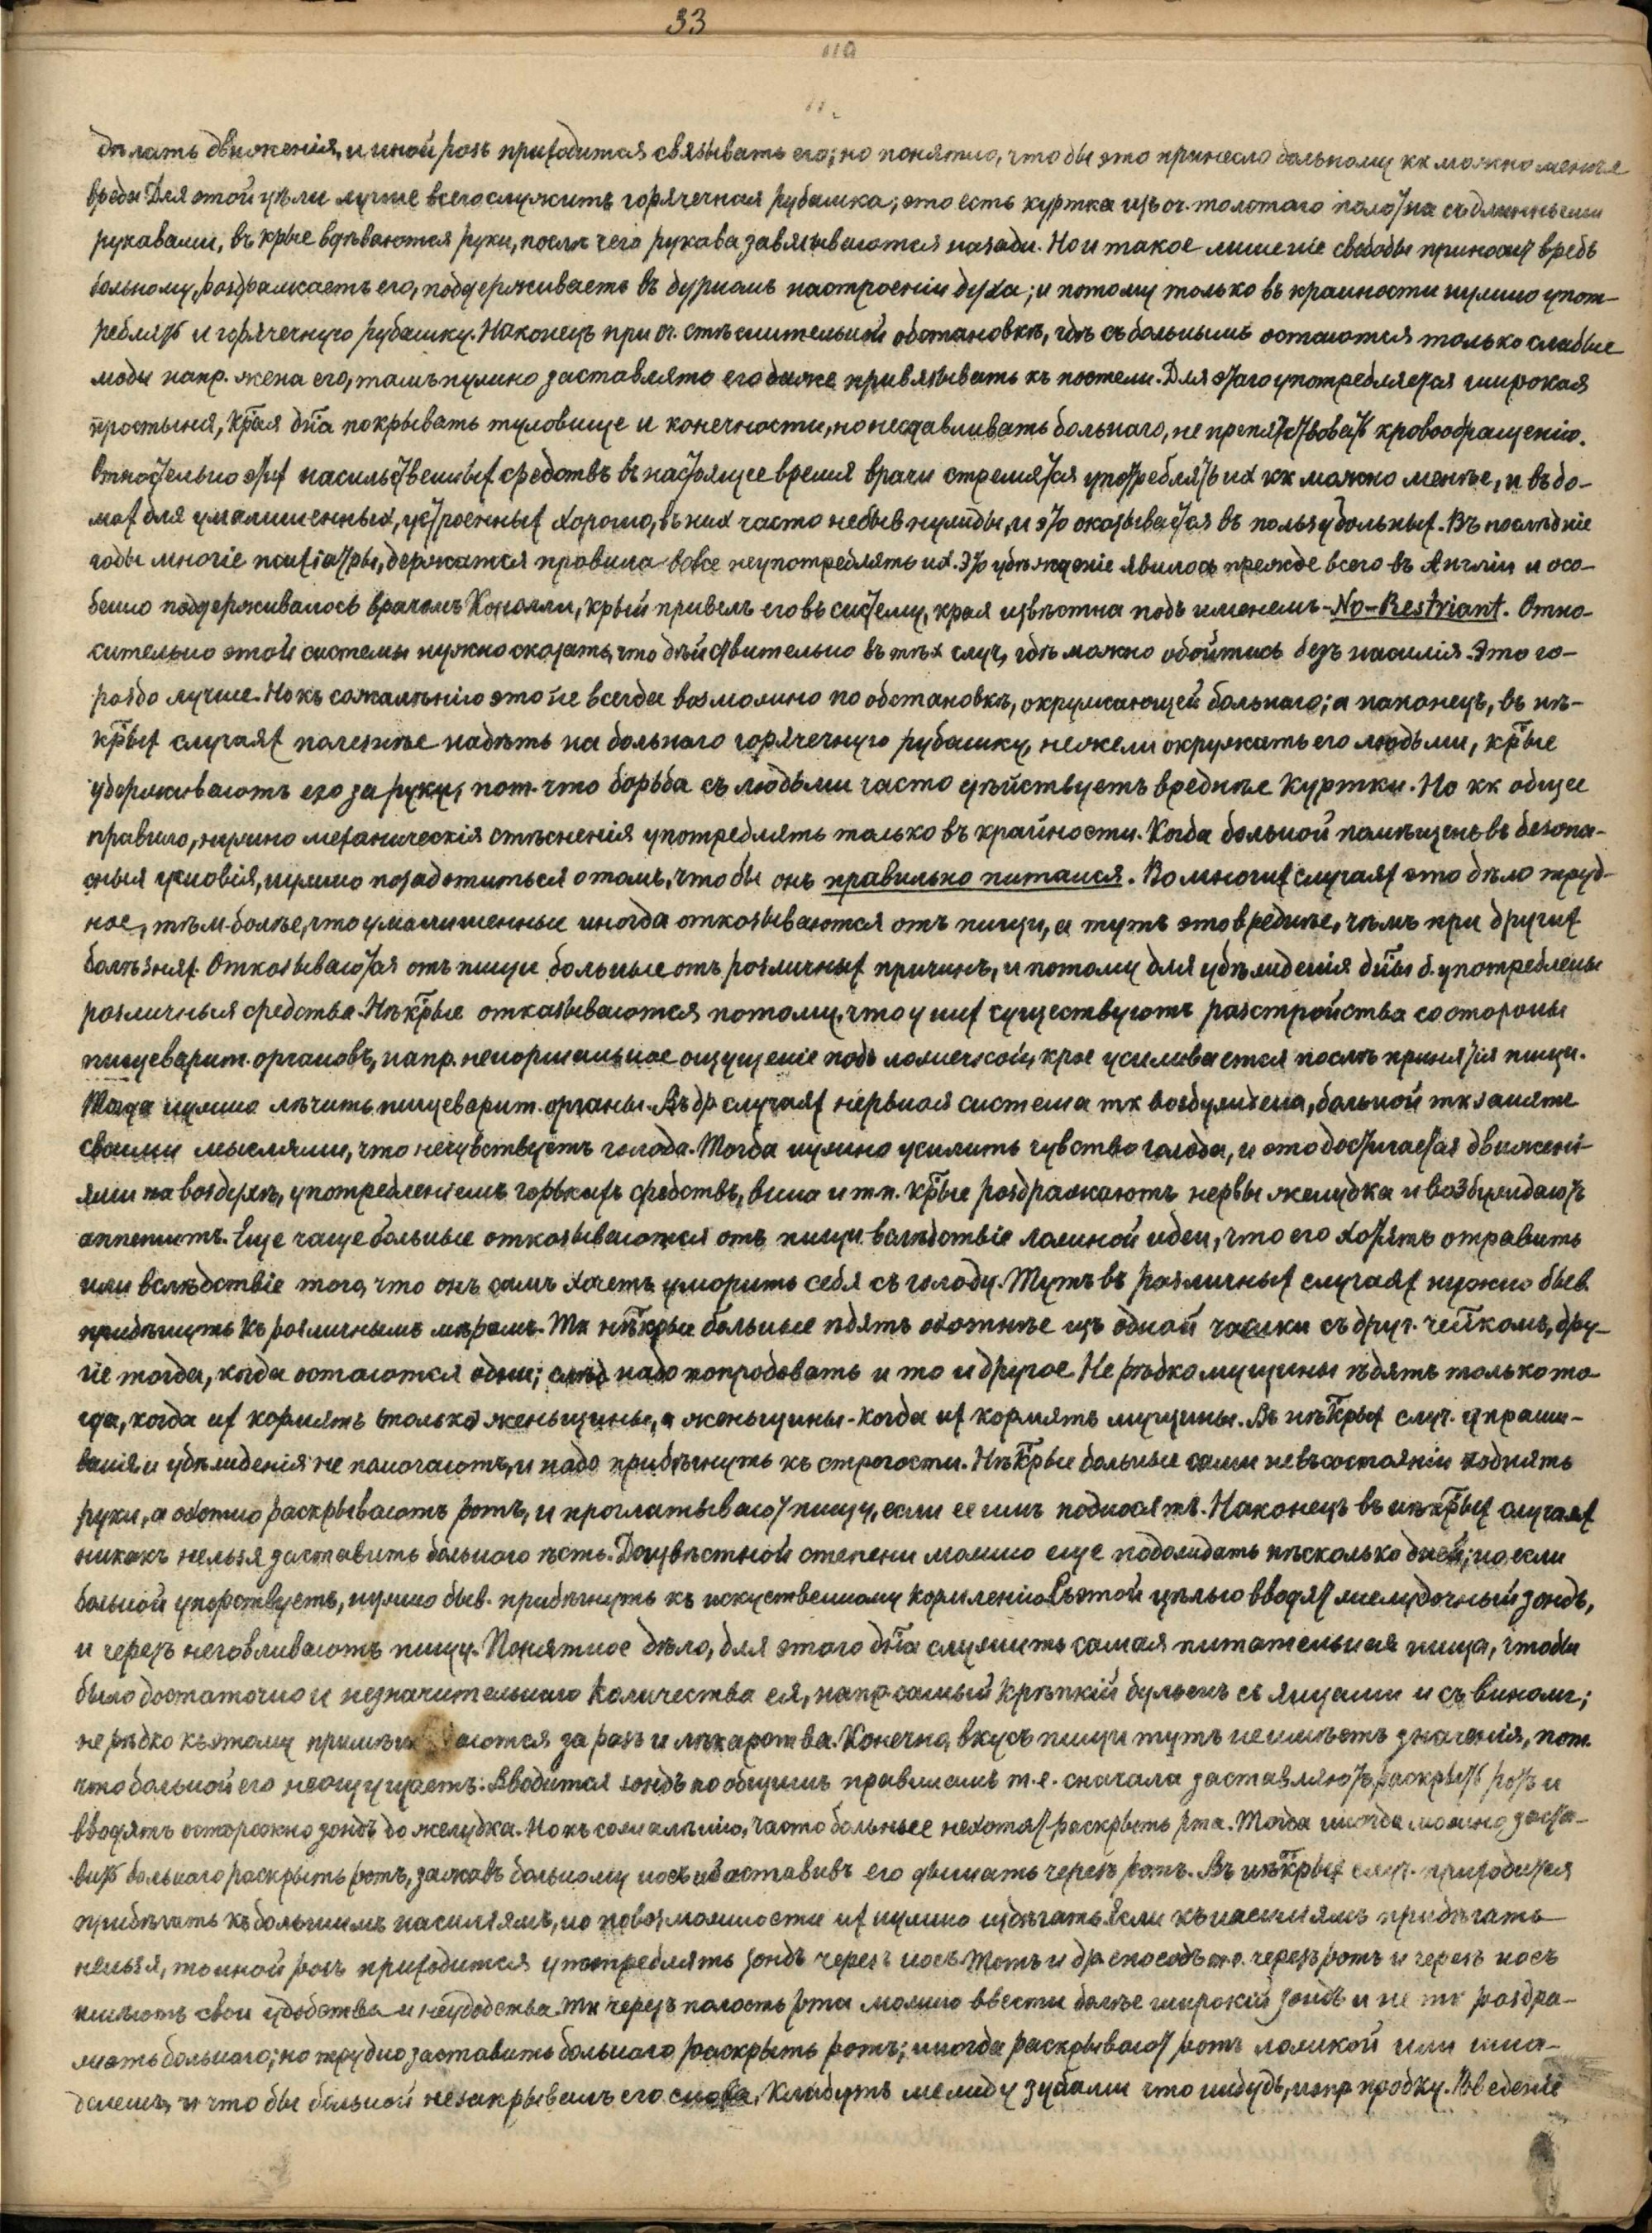 33
дѣлать движенія, и иной разъ приходится связывать его; но понятно, что бы это принесло больному кк можно менѣе
вреда. Для этой цѣли лучше всего служитъ горячечная рубашка; это есть куртка изъ оч. толстаго полотна съ длинными
рукавами, въ крые вдѣваются руки, послѣ чего рукава завязываются назади. Но и такое лишеніе свободы приноситъ вредъ
больному, раздражаетъ его, поддерживаетъ въ дурномъ настроеніи духа; и потому только въ крайности нужно упот-
реблять и горячечную рубашку. Наконецъ при оч. стѣснительной обстановкѣ, гдѣ съ больнымъ остаются только слабые
люди напр. жена его, тамъ нужно заставлять его даже привязывать къ постели. Для этаго употребляется широкая
простыня, края дна покрывать туловище и конечности, но не сдавливать больнаго, не препятствовать кровообращенію.
Относительно этих насильственных средствъ въ настоящее время врачи стремятся употреблять их кк можно менѣе, и въ до-
мах для умалишенных, устроенных хорошо, въ них часто небыв нужды, и это оказывается въ пользу больных. Въ послѣдніе
годы многіе психіатры, держатся правила вовсе неупотреблять их. Это убѣжденіе явилось прежде всего въ Англіи и осо-
бенно поддерживалось врачомъ Конолли, крый привелъ его въ систему, края извѣстна подъ именемъ - No-Restriant. Отно-
сительно этой системы нужно сказать, что дѣйствительно въ тѣх случ, гдѣ можно обойтись безъ насилія. Это го-
раздо лучше. Но къ сожалѣнію это не всегда возможно по обстановкѣ, окружающей больнаго; а наконецъ, въ нѣ-
крых случаях полезнѣе надѣть на больнаго горячечную рубашку, нежели окружать его людьми, крые
удерживаютъ его за руки, пот. что борьба съ людьми часто дѣйствуетъ вреднѣе куртки. Но кк общее
правило, нужно механическія стѣсненія употреблять только въ крайности. Когда больной помѣщенъ въ безопа-
сныя условія, нужно позаботиться о томъ, что бы онъ правильно питался. Во многих случаях это дѣло труд-
ное, тѣм-болѣе, что умалишенные иногда отказываются отъ пищи, а тутъ это вреднѣе, чѣмъ при других
болѣзнях. Отказываются отъ пищи больные отъ различных причинъ, и потому для убѣжденія дны б. употреблены
различныя средства. Нѣкрые отказываются потому, что у них существуютъ разстройства со стороны
пищеварит. органовъ, напр. ненормальное ощущеніе подъ ложечкой, крое усиливается послѣ принятія пищи.
Тогда нужно лѣчить пищеварит. органы. Въ др случаях нервная система тк возбуждена, больной тк занятъ
своими мыслями, что нечувствуетъ голода. Тогда нужно усилить чувство голода, и это достигается движені-
ями на воздухѣ, употребленіемъ горькихъ средствъ, вина и т п. крые раздражаютъ нервы желудка и возбуждаютъ
аппетитъ. Еще чаще больные отказываются отъ пищи вслѣдствіе ложной идеи, что его хотятъ отравить
или вслѣдствіе того, что онъ самъ хочетъ уморить себя съ голоду. Тутъ въ различных случаях нужно быв.
прибѣгнуть къ различнымъ мѣрамъ. Тк нѣкрые больные ѣдятъ охотнѣе изъ одной чашки съ друг. челкомъ, дру-
гіе тогда, когда остаются одни; слѣд надо попробовать и то и другое. Не рѣдко мущины ѣдятъ только то-
гда, когда их кормятъ только женьщины, а женьщины-когда их кормятъ мущины. Въ нѣкрых случ. упраши-
ванія и убѣжденія не помогаютъ, и надо прибѣгнуть къ строгости. Нѣкрые больные сами невъсостояніи поднять
руки, а охотно раскрываютъ ротъ, и проглатываютъ пищу, если ее имъ подносятъ. Наконецъ въ нѣкрых случаях
никакъ нельзя заставить больнаго ѣсть. До извѣстной степени можно еще подождать нѣсколько дней; но если
больной упорствуетъ, нужно быв. прибѣгнуть къ искуственному кормленію. Съ этой цѣлью вводят желудочный зондъ,
и черезъ него вливаютъ пищу. Понятное дѣло, для этого дна служить самая питательная пища, чтобы
было достаточно и незначительнаго количества ея, напр. самый крѣпкій бульонъ съ яицами и съ виномъ;
не рѣдко къ этому примѣши ваются за разъ и лѣкарства. Конечно, вкусъ пищи тутъ неимѣетъ значенія, пот.
что больной его неощущаетъ. Вводится зондъ по общимъ правиламъ т.е. сначала заставляютъ раскрыть ротъ и
вводятъ осторожно зондъ до желудка. Но къ сожалѣнію, часто больные нехотят раскрыть рта. Тогда иногда можно заста-
вить больнаго раскрыть ротъ, зажавъ больному носъ и заставивъ его дышать черезъ ротъ. Въ нѣкрых случ. приходится
прибѣгать къ большимъ насиліямъ, но по возможности их нужно избѣгать. Если къ насиліямъ прибѣгать
нельзя, то иной разъ приходится употреблять зондъ черезъ носъ. Тотъ и др. способъ т.е. черезъ ротъ и черезъ носъ
имѣютъ свои удобства и неудобства. Тк черезъ полость рта можно ввести болѣе широкій зондъ и не тк раздра-
жать больнаго; но трудно заставить больнаго раскрыть ротъ; иногда раскрываютъ ротъ ложкой или шпа-
делемъ, и что бы больной незакрывалъ его снова, кладутъ между зубами что нибудь, напр пробку. Введеніе